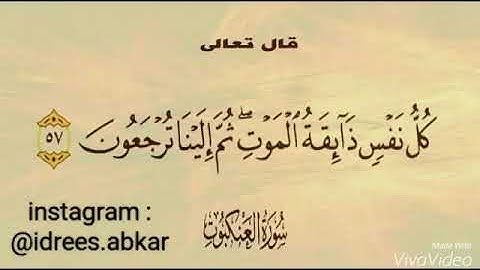 قال تعالى
كُلُّ نَفْسٍ ذَآئِقَةُ الْمَوْتِ ۖ ثُمَّ إِلَيْنَا تُرْجَعُونَ ٥٧
instagram :
@idrees.abkar
سُورَةُ العَنكَبُوتِ
Made With
VivaVideo